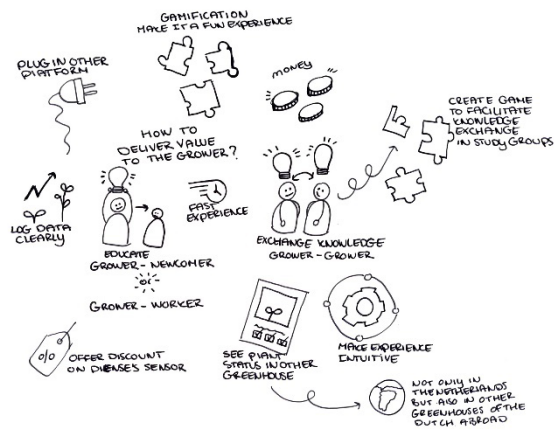 GAMIFICATION
MAKE IT A FUN EXPERIENCE
PLUG IN OTHER
PLATFORM
MONEY
CREATE GAME
TO FACILITATE
KNOWLEDGE
EXCHANGE
IN STUDY GROUPS
HOW TO
DELIVER VALUE
TO THE GROWER?
FAST
EXPERIENCE
LOG DATA
CLEARLY
EDUCATE
GROWER - NEWCOMER
or
GROWER - WORKER
EXCHANGE KNOWLEDGE
GROWER - GROWER
%
OFFER DISCOUNT
ON DIENSES SENSOR
SEE PLANT
STATUS IN OTHER
GREENHOUSE
MAKE EXPERIENCE
INTUITIVE
NOT ONLY IN
THE NETHERLANDS
BUT ALSO IN OTHER
GREENHOUSES OF THE
DUTCH ABROAD